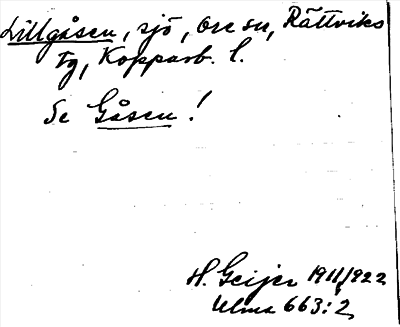 Lillgåsen, sjö, Ore sn, Rättviks
tg, Kopparb. l.
Se Gåsen!
H. Geijer 1911/922
Ulma 663:2